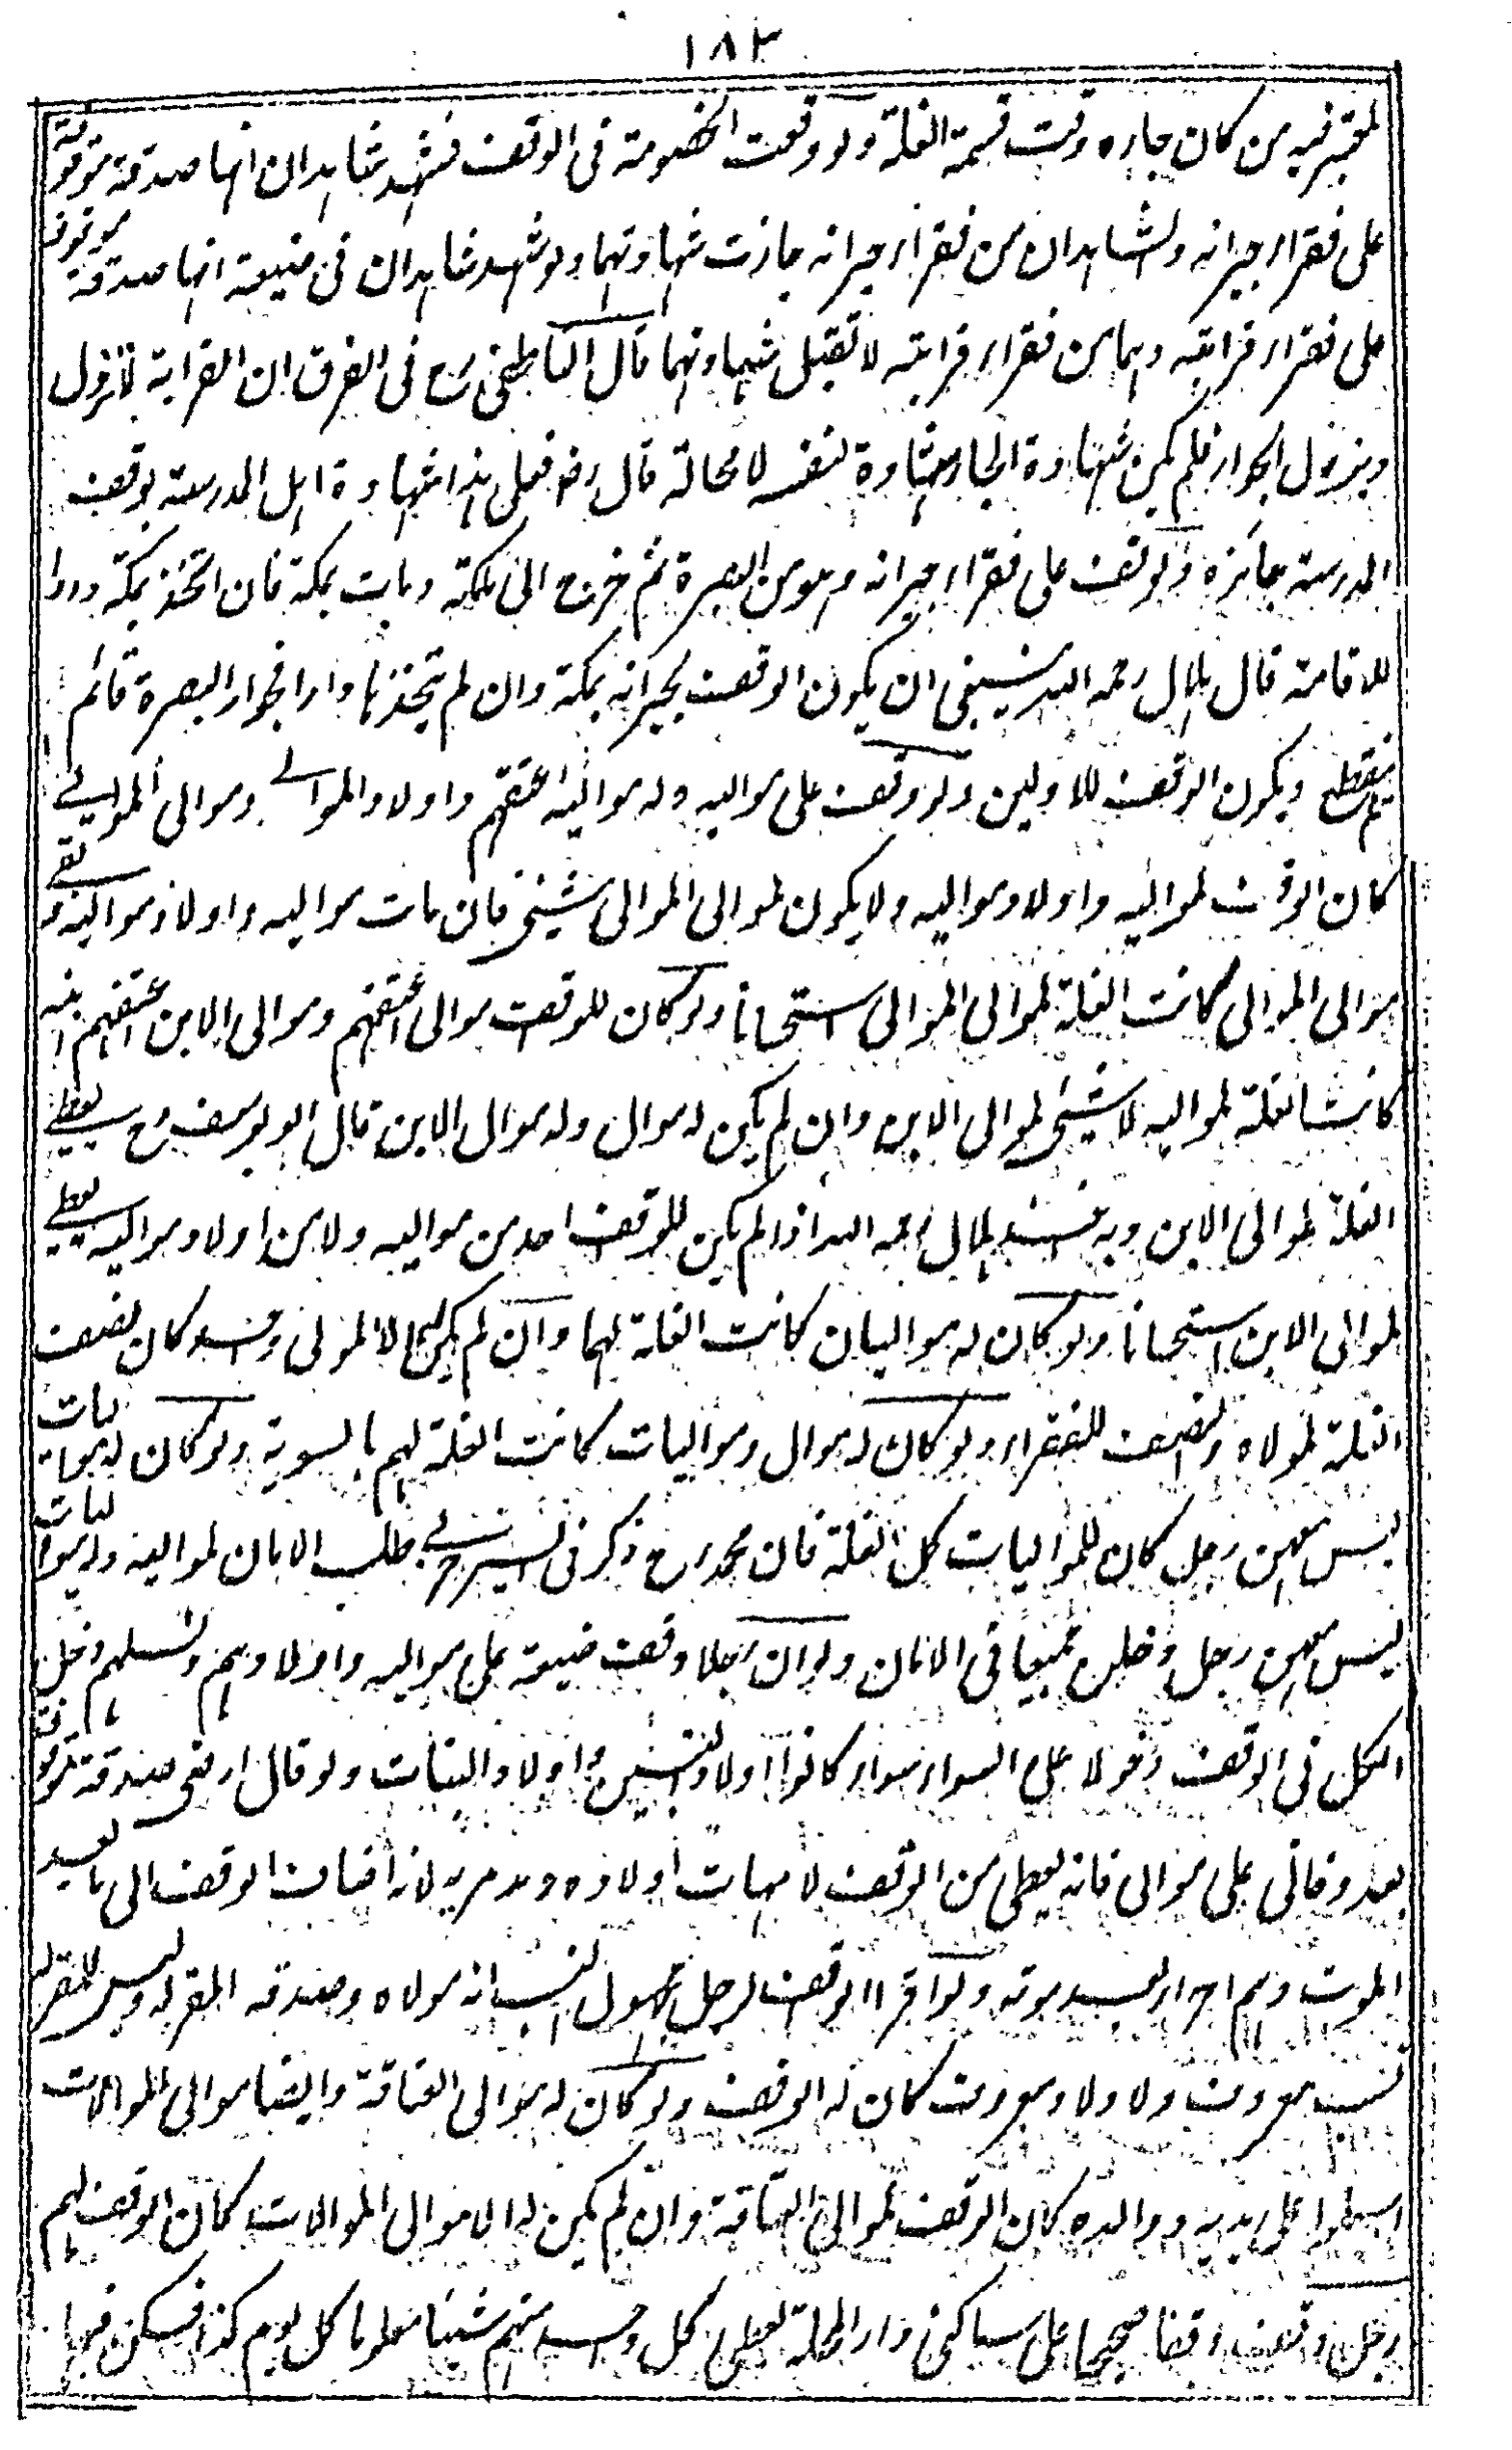 ١٨٢
المعتبر فيه من كان جاره وقت قسمة الغلة ولو وقعت الخصومة فى الوقف فشهد شاهدان انها صدقة موقوفة
على فقراء جيرانه والشاهدان من فقراء جيرانه جازت شهادتهما ولو شهد شاهدان فى ضيعة انها صدقة موقوفة
على فقراء قرابته وهما من فقراء قرابته لا تقبل شهادتهما قال الناطفى رح فى الفرق ان القرابة لا تزول
ويزول الجوار فلم يكن شهادة الجار شهادة لنفسه لا محالة قال رضه فعلى هذا شهادة اهل المدرسة بوقف
المدرسة جائزة ولو وقف على فقراء جيرانه وهو من البصرة ثم خرج الى مكة ومات بمكة فان اتخذ بمكة دارا
للاقامة قال هلال رحمه الله ينبغى ان يكون الوقف لجيرانه بمكة وان لم يتخذها دارا فجوار البصرة قائم
لم ينقطع ويكون الوقف للاولين ولو وقف على مواليه وله موالى اعتقهم واولاد الموالى وموالى الموالى
كان الوقف لمواليه واولاد مواليه ولا يكون لموالى الموالى شيئ فان مات مواليه واولاد مواليه وبقى
موالى الموالى كانت الغلة لموالى الموالى استحسانا ولو كان للوقف موالى اعتقهم وموالى الابن اعتقهم ابنه
كانت الغلة لمواليه لا شيئ لموالى الابن وان لم يكن له موال وله موال الابن قال ابو يوسف رح يعطى
الغلة لموالى الابن وبه اخذ هلال رحمه الله اذا لم يكن للوقف احد من مواليه ولا من اولاد مواليه يعطى
لموالى الابن استحسانا ولو كان له مواليان كانت الغلة لهما وان لم يكن له الا مولى واحد كان نصف
الغلة لمولاه والنصف للفقراء ولو كان له موال ومواليات كانت الغلة لهم بالسوية ولو كان له مواليات
ليس معهن رجل كان للمواليات كل الغلة فان محمد رح ذكر فى السير حربى طلب الامان لمواليه وله مواليات
ليس معهن رجل دخلن جميعا فى الامان ولو ان رجلا وقف ضيعة على مواليه واولادهم ونسلهم دخل
الكل فى الوقف دخولا على السواء سواء كانوا اولاد البنين او اولاد البنات ولو قال ارضى صدقة موقوفة
بعد وفاتى على موالى فانه يعطى من الوقف لامهات اولاده ومدبريه لانه اضاف الوقف الى ما بعد
الموت وهم احرار بعد موته ولو اقر الواقف لرجل مجهول النسب انه مولاه وصدقه المقر له وليس للمقر له
نسب معروف ولا ولاء معروف كان له الوقف ولو كان له موالى العتاقة وايضا موالى الموالات
اسلموا على يديه ووالده كان الوقف لموالى العتاقة وان لم يكن له الا موالى الموالات كان الوقف لهم
رجل وقف وقفا صحيحا على ساكنى دار المحلة يعطى كل واحد منهم شيئا معلوما كل يوم كذا فسكن فيها